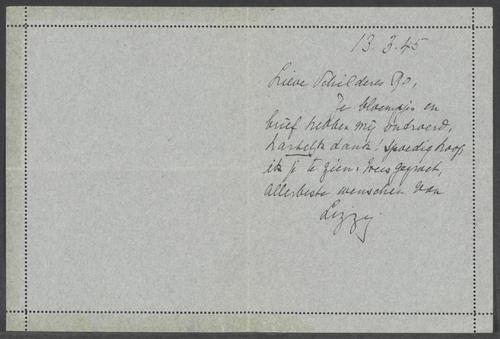 13.3.45
Lieve Schilderes Jo,
Je bloempjes en
brief hebben mij ontroerd,
hartelijk dank! Spoedig hoop
ik je te zien. Wees gegroet,
allerbeste wenschen van
Lizzy